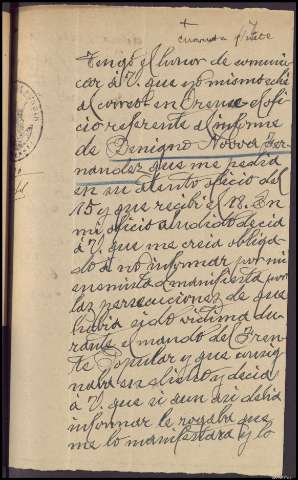 Tengo el honor de comunicar
car á V. que yo mismo eché
al correo en Orense el ofi-
cio referente al informe
de Benigno Novoa Fer-
nandez que me pedía
en su atento oficio del
15 y que recibí el 18. En
mi oficio aludido decía
á V. que me creía obliga-
do á no informar por mi
enemistad manifiesta por
las persecuciones de que
había sido víctima du-
rante el mando del Fren-
te Popular y que consig-
naba en el y decía
á V. que si aun así debía
informar le rogaba que
me lo manifestara y lo